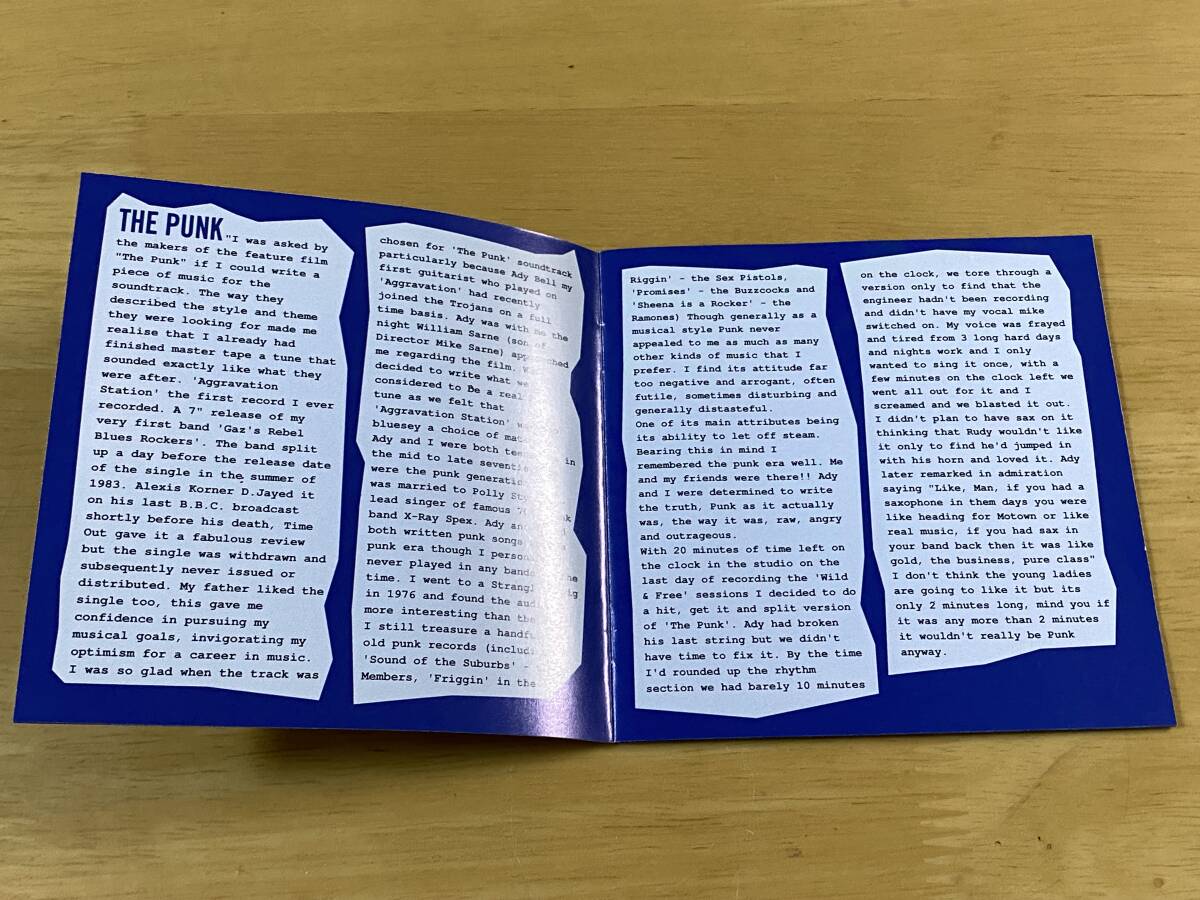 THE PUNK "I was asked by
the makers of the feature film
"The Punk" if I could write a
piece of music for the
soundtrack. The way they
described the style and theme
they were looking for made me
realise that I already had
finished master tape a tune that
sounded exactly like what they
were after. 'Aggravation
Station' the first record I ever
recorded. A 7" release of my
very first band 'Gaz's Rebel
Blues Rockers'. The band split
up a day before the release date
of the single in the summer of
1983. Alexis Korner D.Jayed it
on his last B.B.C. broadcast
shortly before his death, Time
Out gave it a fabulous review
but the single was withdrawn and
subsequently never issued or
distributed. My father liked the
single too, this gave me
confidence in pursuing my
musical goals, invigorating my
optimism for a career in music.
I was so glad when the track was
chosen for 'The Punk' soundtrack
particularly because Ady Bell my
first guitarist who played on
'Aggravation' had recently
joined the Trojans on a full
time basis. Ady was with me the
night William Sarne (son of
Director Mike Sarne)
me regarding the film.
decided to write what
considered to Be a real
tune as we felt that
'Aggravation Station'
bluesey a choice of
Ady and I were both in
the mid to late
were the punk
was married to Polly
lead singer of famous
band X-Ray Spex. Ady
both written punk songs
punk era though I
never played in any
time. I went to a
in 1976 and found the
more interesting than
I still treasure a
old punk records
'Sound of the Suburbs' -
Members, 'Friggin' in the
Riggin' - the Sex Pistols,
'Promises' - the Buzzcocks and
'Sheena is a Rocker' - the
Ramones) Though generally as a
musical style Punk never
appealed to me as much as many
other kinds of music that I
prefer. I find its attitude far
too negative and arrogant, often
futile, sometimes disturbing and
generally distasteful.
One of its main attributes being
its ability to let off steam.
Bearing this in mind I
remembered the punk era well. Me
and my friends were there!! Ady
and I were determined to write
the truth, Punk as it actually
was, the way it was, raw, angry
and outrageous.
With 20 minutes of time left on
the clock in the studio on the
last day of recording the 'Wild
& Free' sessions I decided to do
a hit, get it and split version
of 'The Punk'. Ady had broken
his last string but we didn't
have time to fix it. By the time
I'd rounded up the rhythm
section we had barely 10 minutes
on the clock, we tore through a
version only to find that the
engineer hadn't been recording
and didn't have my vocal mike
switched on. My voice was frayed
and tired from 3 long hard days
and nights work and I only
wanted to sing it once, with a
few minutes on the clock left we
went all out for it and I
screamed and we blasted it out.
I didn't plan to have sax on it
thinking that Rudy wouldn't like
it only to find he'd jumped in
with his horn and loved it. Ady
later remarked in admiration
saying "Like, Man, if you had a
saxophone in them days you were
like heading for Motown or like
real music, if you had sax in
your band back then it was like
gold, the business, pure class"
I don't think the young ladies
are going to like it but its
only 2 minutes long, mind you if
it was any more than 2 minutes
it wouldn't really be Punk
anyway.